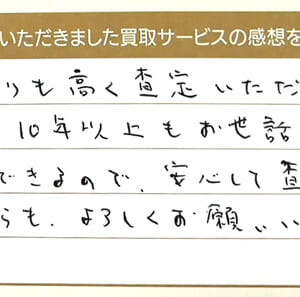 いただきました買取サービスの感想を
りも高く査定いただ
10年以上もお世話
できるので、安心して査
らも、よろしくお願いい